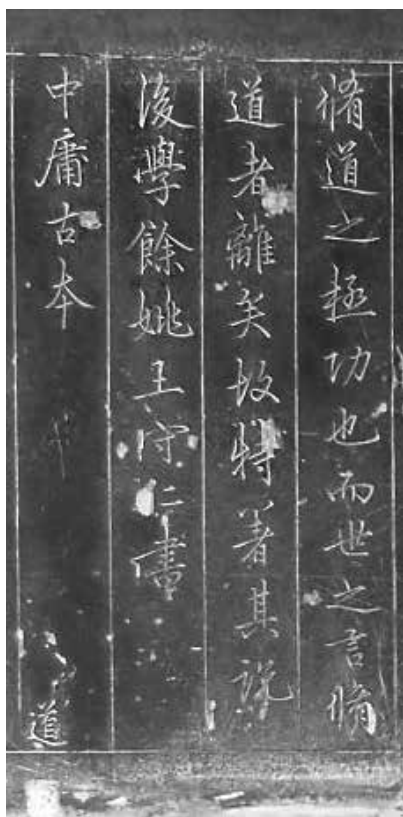 脩道之極功也而世之言脩
道者離矣故特著其說
後學餘姚王守仁書
中庸古本
道